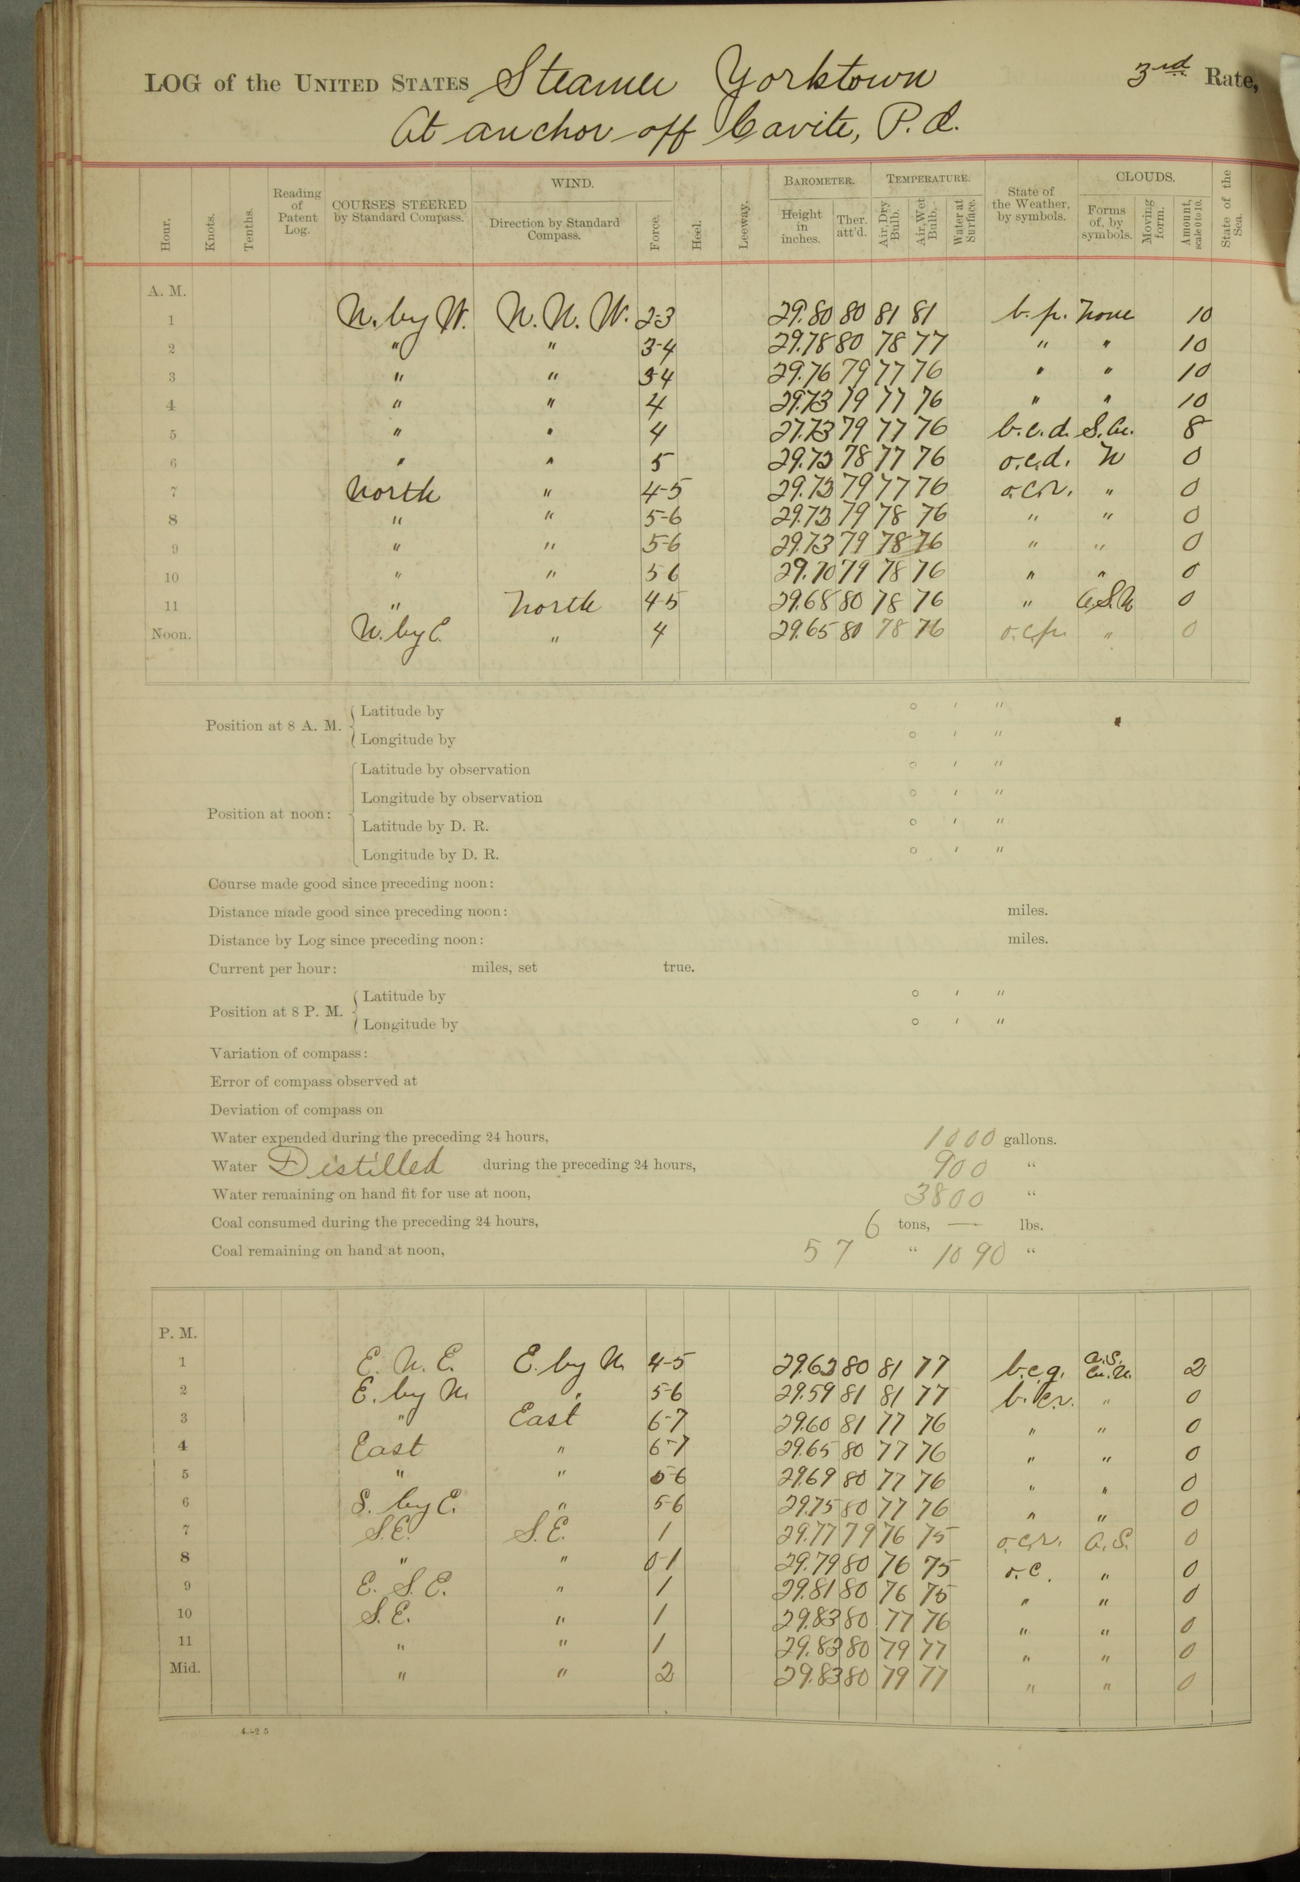 LOG of the UNITED STATES Steamer Yorktown 3rd Rate,
At anchor off Cavite, P. I.
Hour. Knots. Tenths. Reading of Patent Log. COURSES STEERED by Standard Compass. WIND. Direction by Standard Compass. Force. Heel. Leeway. BAROMETER. Height in inches. Ther. att'd. TEMPERATURE. Air, Dry Bulb. Air, Wet Bulb. Water at Surface. State of the Weather, by symbols. CLOUDS. Forms of, by symbols. Moving form. Amount, scale 0 to 10. State of the Sea.
A. M.
1 N. by W. N. N. W. 2-3 29.80 80 81 81 b. p. None 10
2 " " 3-4 29.78 80 78 77 " " 10
3 " " 3-4 29.76 79 77 76 " " 10
4 " " 4 29.73 79 77 76 " " 10
5 " " 4 27.73 79 77 76 b. c. d. S. Cu. 8
6 " " 5 29.72 78 77 76 o. c. d. N 0
7 North " 4-5 29.73 79 77 76 o. c. r. " 0
8 " " 5-6 29.73 79 78 76 " " 0
9 " " 5-6 29.73 79 78 76 " " 0
10 " " 5 6 29.70 79 78 76 " " 0
11 " North 4-5 29.68 80 78 76 " 0
Noon. N. by E. " 4 29.65 80 78 76 o. c. p. " 0
Position at 8 A. M. Latitude by ° ′ ″
Longitude by ° ′ ″
Position at noon: Latitude by observation ° ′ ″
Longitude by observation ° ′ ″
Latitude by D. R. ° ′ ″
Longitude by D. R. ° ′ ″
Course made good since preceding noon:
Distance made good since preceding noon: miles.
Distance by Log since preceding noon: miles.
Current per hour: miles, set true.
Position at 8 P. M. Latitude by ° ′ ″
Longitude by ° ′ ″
Variation of compass:
Error of compass observed at
Deviation of compass on
Water expended during the preceding 24 hours, 1000 gallons.
Water Distilled during the preceding 24 hours, 900 "
Water remaining on hand fit for use at noon, 3800 "
Coal consumed during the preceding 24 hours, 6 tons, — lbs.
Coal remaining on hand at noon, 57 " 1090 "
P. M.
1 E. N. E. E. by N. 4-5 29.62 80 81 77 b. c. q. a. S. Cu. N. 2
2 E. by N. " 5-6 29.59 81 81 77 b. c. r. " 0
3 " East 6-7 29.60 81 77 76 " " 0
4 East " 6-7 29.65 80 77 76 " " 0
5 " " 5-6 29.69 80 77 76 " " 0
6 S. by E. " 5-6 29.75 80 77 76 " " 0
7 S. E. S. E. 1 29.77 79 76 75 o. c. r. a. S. 0
8 " " 0-1 29.79 80 76 75 o. c. " 0
9 E. S. E. " 1 29.81 80 76 75 " " 0
10 S. E. " 1 29.83 80 77 76 " " 0
11 " " 1 29.83 80 79 77 " " 0
Mid. " " 2 29.83 80 79 77 " " 0
4.-2 5